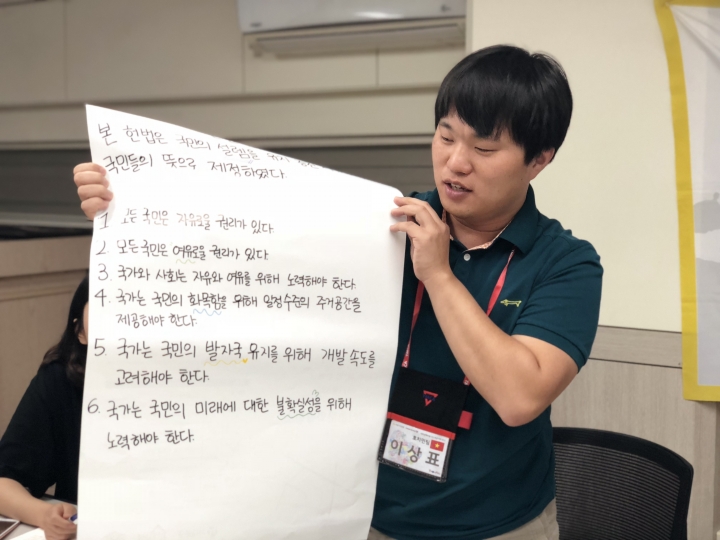 본 헌법은 국민의 설렘을 위해
국민들의 뜻으로 제정하였다.
1. 모든 국민은 자유로울 권리가 있다.
2. 모든 국민은 여유로울 권리가 있다.
3. 국가와 사회는 자유와 여유를 위해 노력해야 한다.
4. 국가는 국민의 화목함을 위해 일정수준의 주거공간을
제공해야 한다.
5. 국가는 국민의 발자국 유지를 위해 개발 속도를
고려해야 한다.
6. 국가는 국민의 미래에 대한 불확실성을 위해
노력해야 한다.
이상표